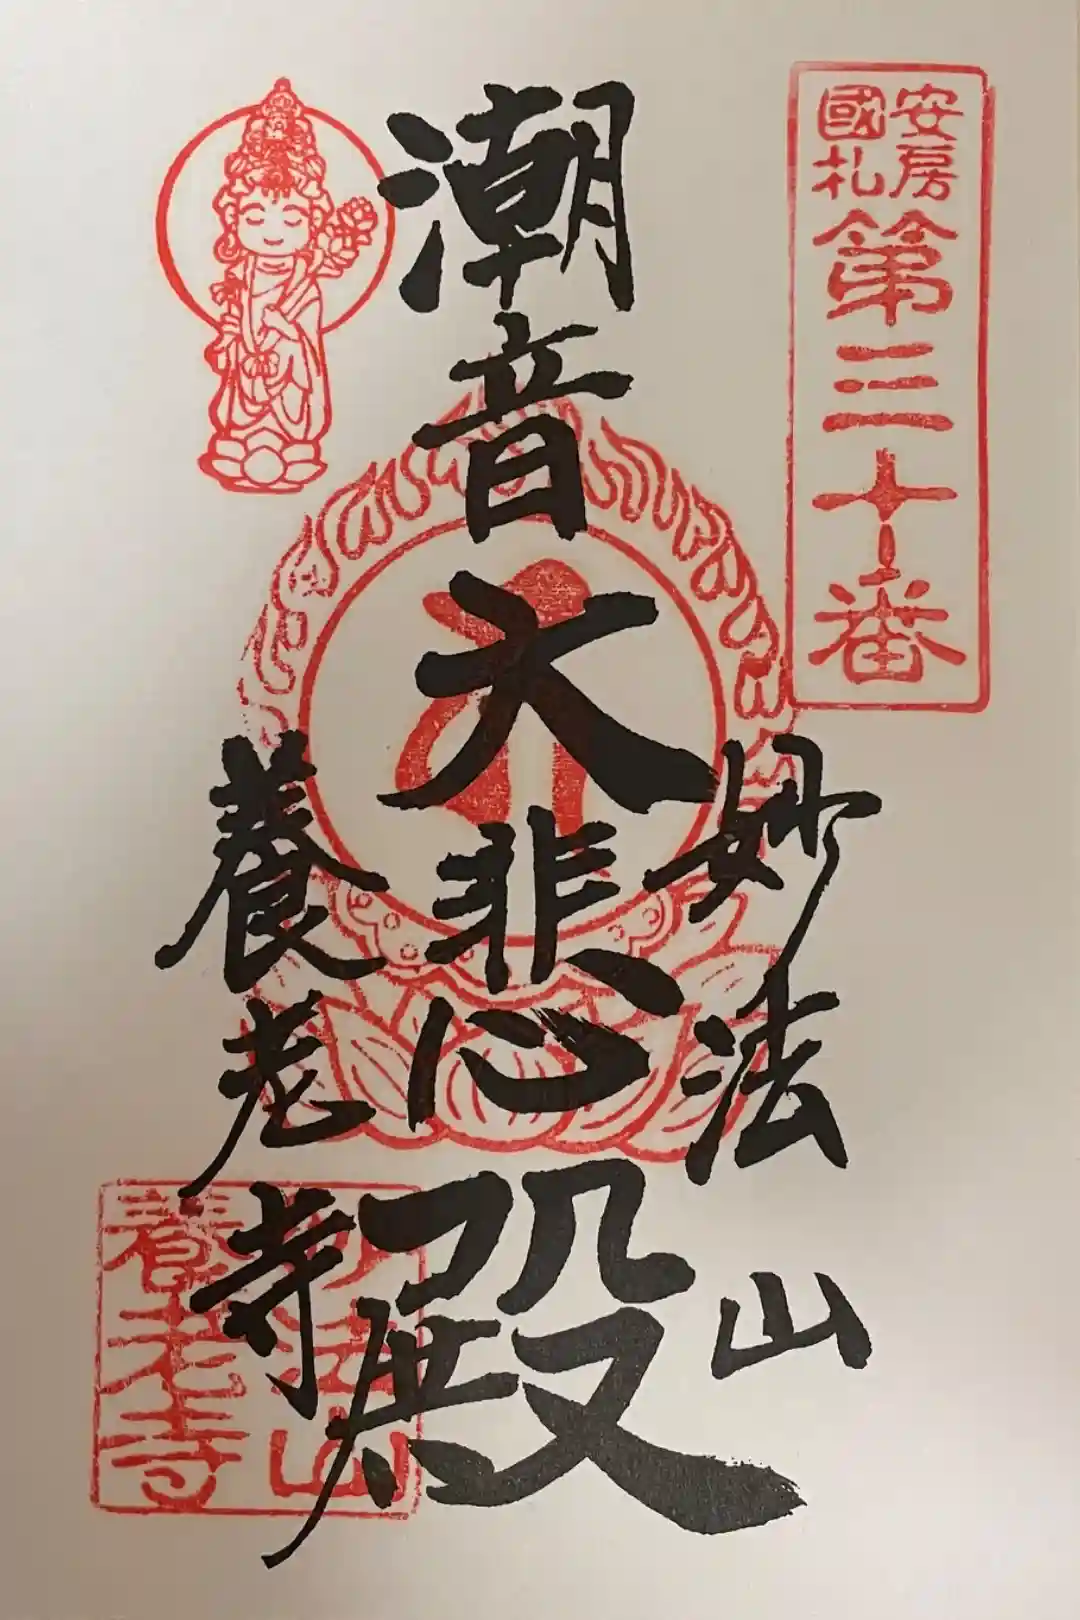 安房
國札
第三十番
潮音大悲心殿
妙法山
養老寺
妙法山
養老寺